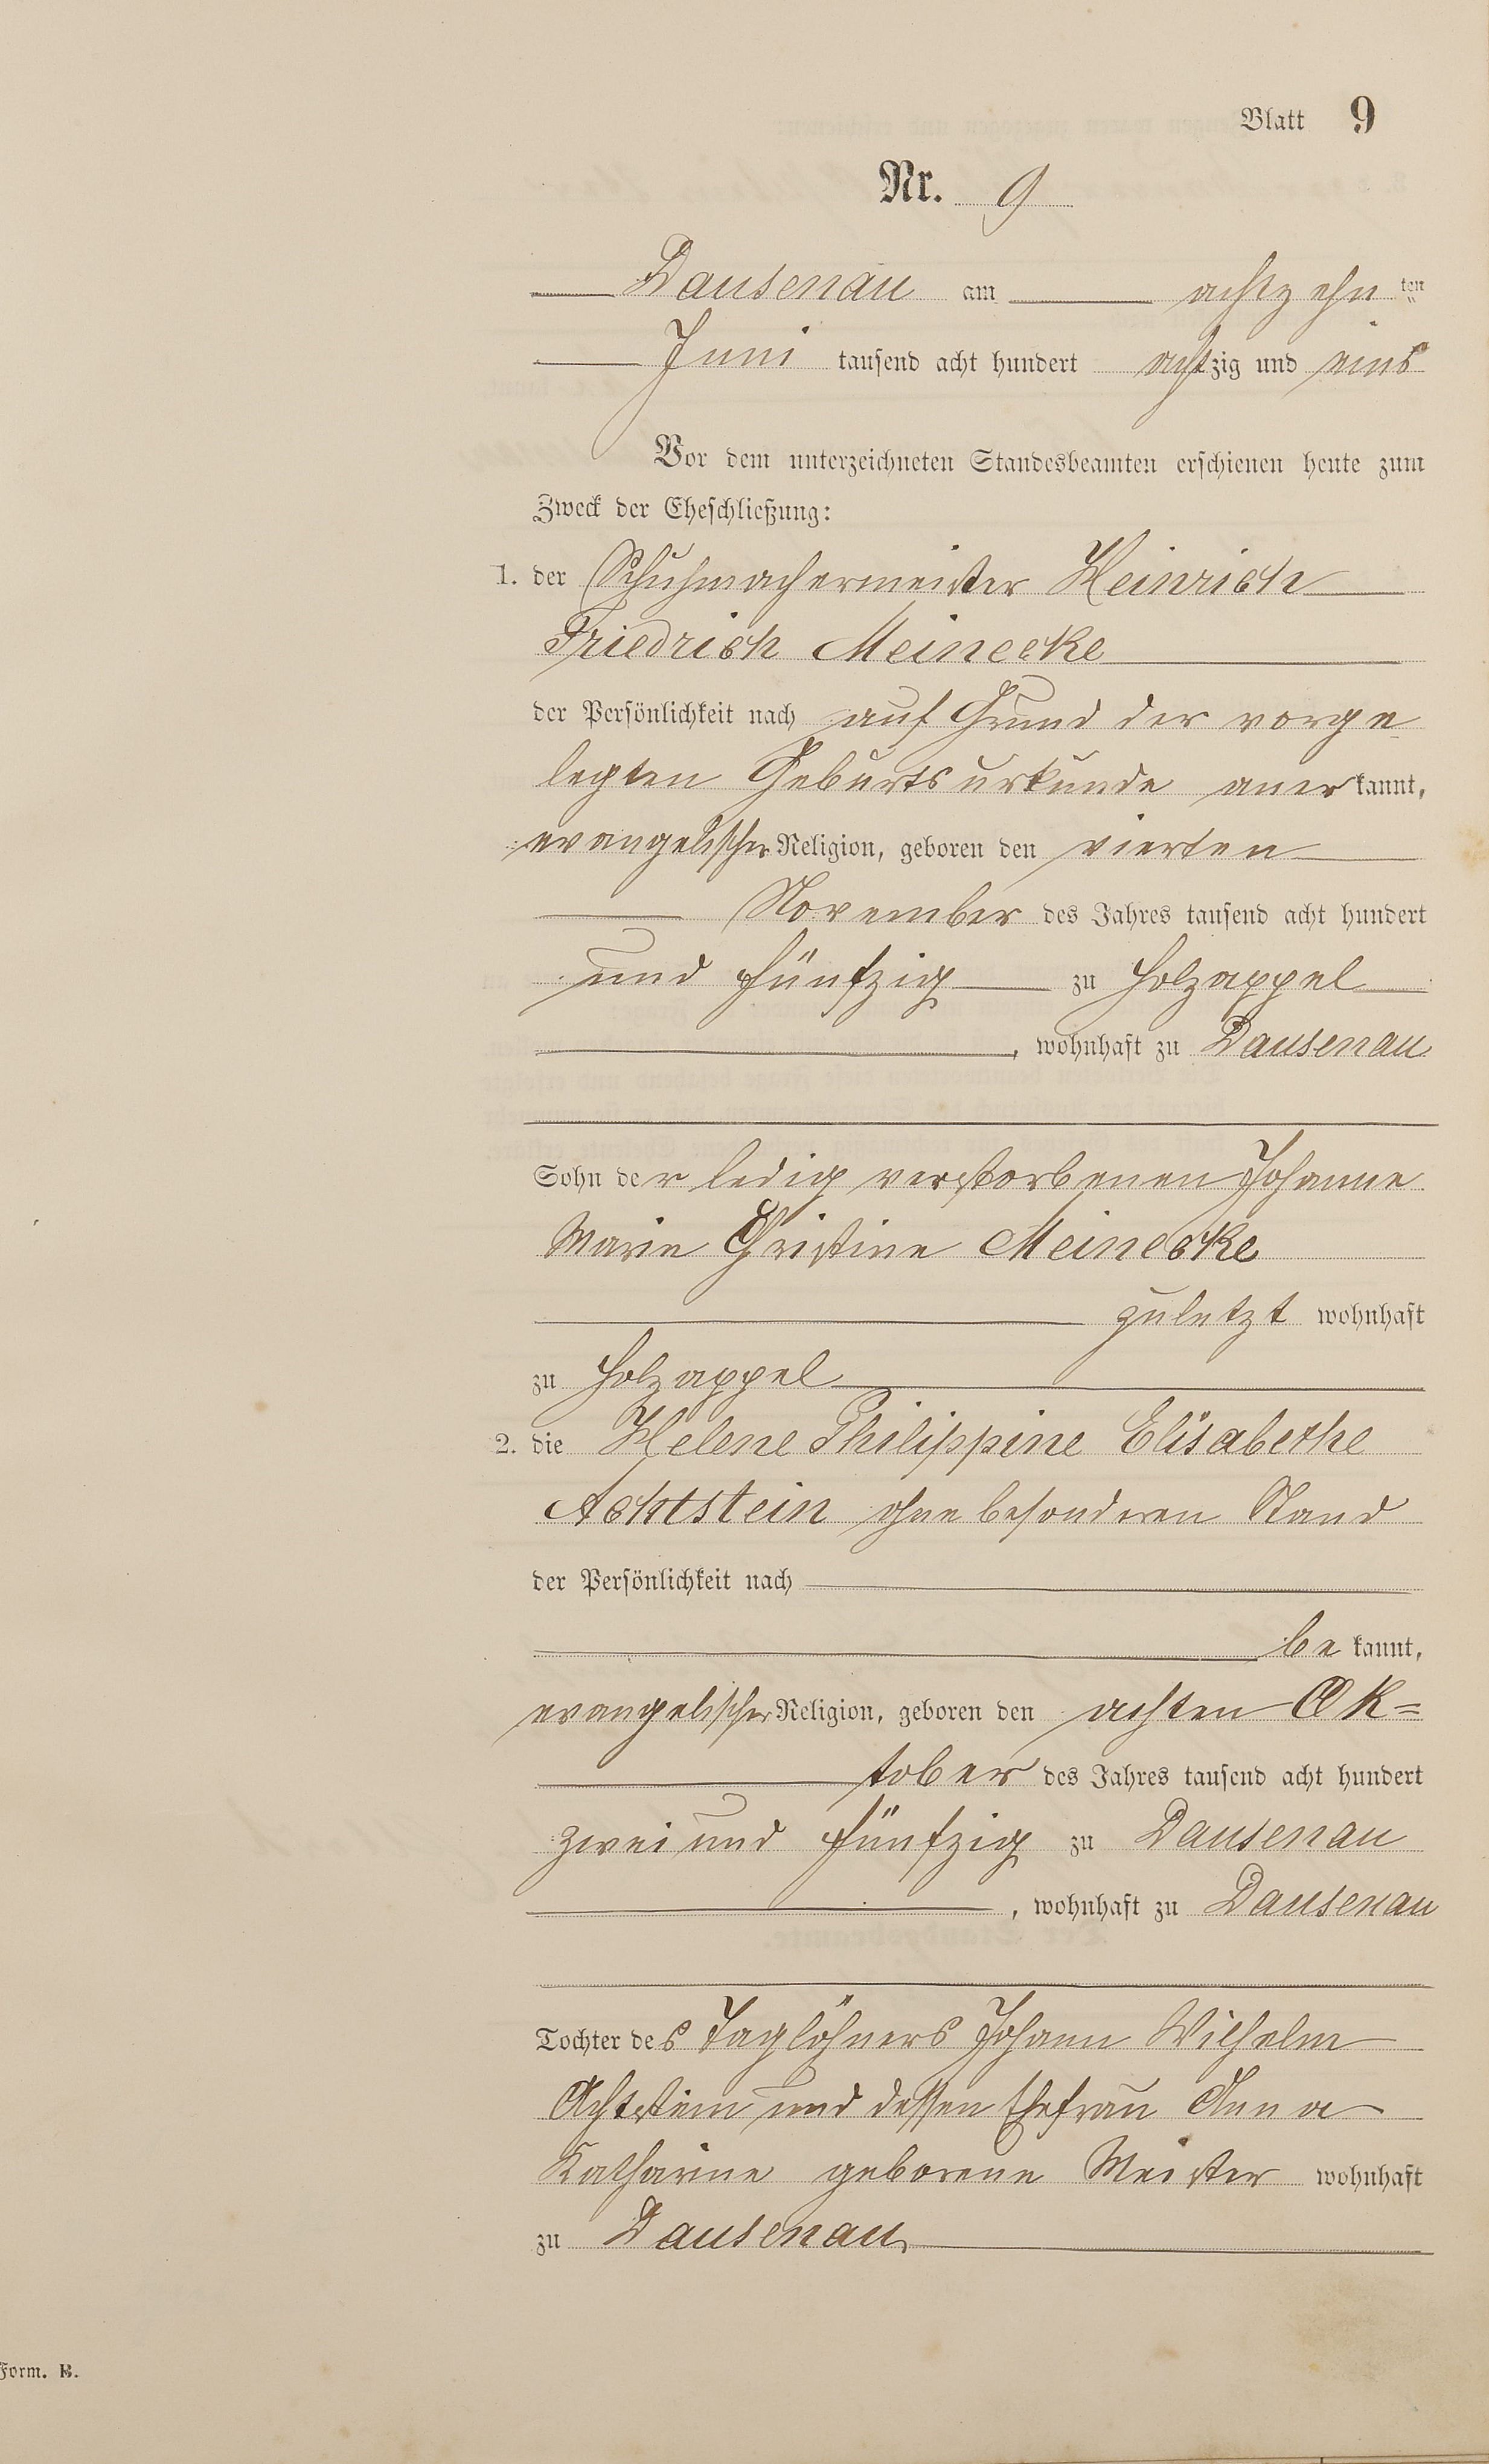 Blatt 9
Nr. 9
Dausenau am achtzehn ten
Juni tausend acht hundert achtzig und eins
Vor dem unterzeichneten Standesbeamten erschienen heute zum
Zweck der Eheschließung:
1. der Schuhmachermeister Heinrich
Friedrich Meinecke
der Persönlichkeit nach auf Grund der vorge
legten Geburtsurkunde anerkannt,
evangelischer Religion, geboren den vierten
November des Jahres tausend acht hundert
und fünfzig zu Holzappel
, wohnhaft zu Dausenau
Sohn der ledig verstorbenen Johanne
Marie Christine Meinecke
zuletzt wohnhaft
zu Holzappel
2. die Helene Philippine Elisabethe
Achtstein ohne besonderen Stand
der Persönlichkeit nach
bekannt,
evangelischer Religion, geboren den achten Ok=
tober des Jahres tausend acht hundert
zwei und fünfzig zu Dausenau
, wohnhaft zu Dausenau
Tochter des Taglöhners Johann Wilhelm
Achtstein und dessen Ehefrau Anna
Katharine geborene Meister wohnhaft
zu Dausenau
Form. B.